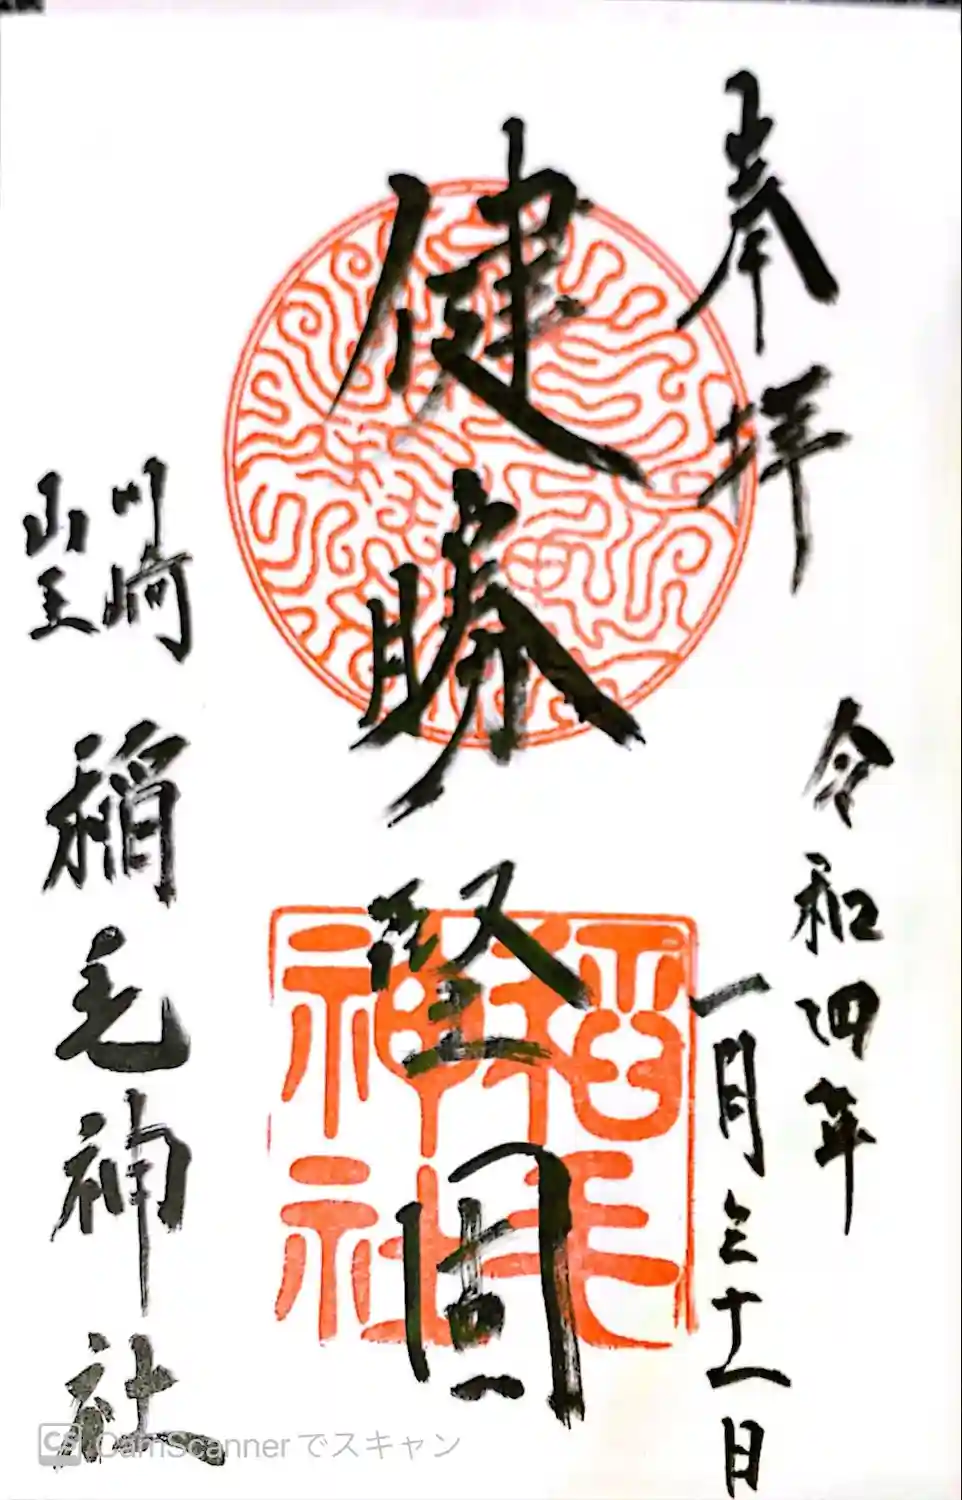 奉拝
令和四年
一月三十一日
健勝堅固
川崎
山王
稲毛神社
稲毛
神社
CS CamScannerでスキャン